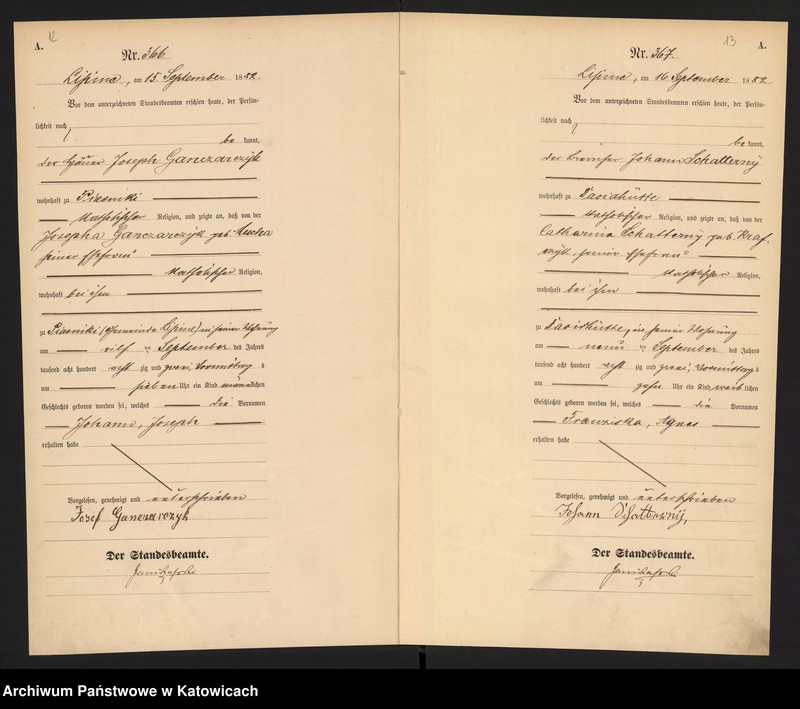 12
A.
Nr. 366.
Lipine, am 15. September 1882
Vor dem unterzeichneten Standesbeamten erschien heute, der Persön-
lichkeit nach
be kannt,
der Häuer Joseph Ganczarczyk
wohnhaft zu Piasniki
katholischer Religion, und zeigte an, daß von der
Josepha Ganczarczyk geb. Mucha
seiner Ehefrau
katholischer Religion,
wohnhaft bei ihm
zu Piasniki (Gemeinde Lipine) in seiner Wohnung
am eilf ten September des Jahres
tausend acht hundert acht zig und zwei, Vormittag s
um sieben Uhr ein Kind männ lichen
Geschlechts geboren worden sei, welches die Vornamen
Johann, Joseph
erhalten habe
Vorgelesen, genehmigt und unterschrieben
Josef Ganczarczyk
Der Standesbeamte.
13
A.
Nr. 367.
Lipine, am 16. September 1882
Vor dem unterzeichneten Standesbeamten erschien heute, der Persön-
lichkeit nach
be kannt,
der Bremser Johann Schatterny
wohnhaft zu Davidhütte
katholischer Religion, und zeigte an, daß von der
Catharina Schatterny geb. Kraf-
seiner Ehefrau
katholischer Religion,
wohnhaft bei ihm
zu Davidhütte, in seiner Wohnung
am neun ten September des Jahres
tausend acht hundert acht zig und zwei, Vormittag s
um zehn Uhr ein Kind weib lichen
Geschlechts geboren worden sei, welches die Vornamen
Franziska, Agnes
erhalten habe
Vorgelesen, genehmigt und unterschrieben
Johann Schatterny,
Der Standesbeamte.
Archiwum Państwowe w Katowicach